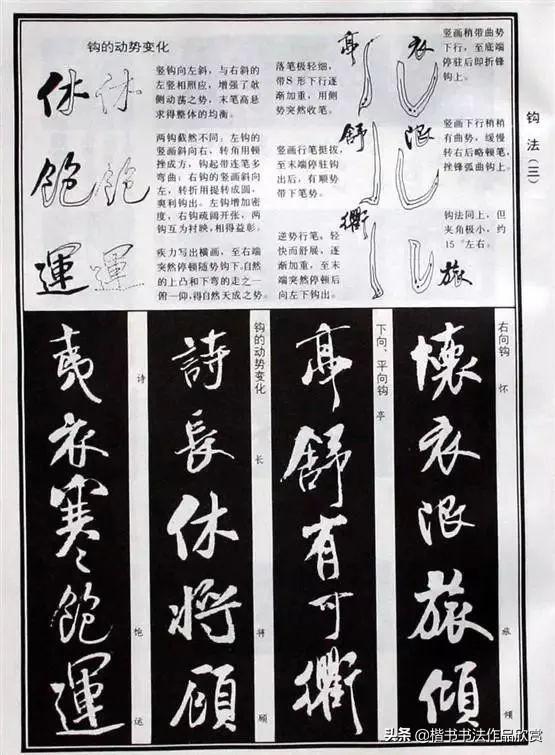 钩法(三)
衣
竖画稍带曲势
下行，至底端
停驻后即折锋
钩上。
竖画下行稍稍
有曲势，缓慢
转右后略顿笔，
挫锋弧曲钩上。
钩法同上，但
夹角极小，约
15°左右。
旅
落笔极轻细，
带S形下行逐
渐加重，用侧
势突然收笔。
亭
竖画行笔挺拔，
至末端停驻钩
出后，有顺势
带下笔势。
舒
逆势行笔，轻
快而舒展，逐
渐加重，至末
端突然停顿后
向左下钩出。
衢
钩的动势变化
休休
竖钩向左斜，与右斜的
左竖相照应，增强了欹
侧动荡之势，末笔高悬
求得整体的均衡。
飽飽
两钩截然不同：左钩的
竖画斜向右，转角用顿
挫成方，钩起带连笔多
弯曲；右钩的竖画斜向
左，转折用提转成圆，
爽利钩出。左钩增加密
度，右钩疏阔开张，两
钩互为衬映，相得益彰。
運運
疾力写出横画，至右端
突然停顿随势钩下。自然
的上凸和下弯的走之一
俯一仰，得自然天成之势。
右向钩 怀 旅 倾
懷衣旅傾
下向、平向钩 亭
亭舒有可衢
钩的动势变化 长 将 顾
詩長休將顧
诗 饱 运
夷衣寒飽運
头条@楷书书法作品欣赏